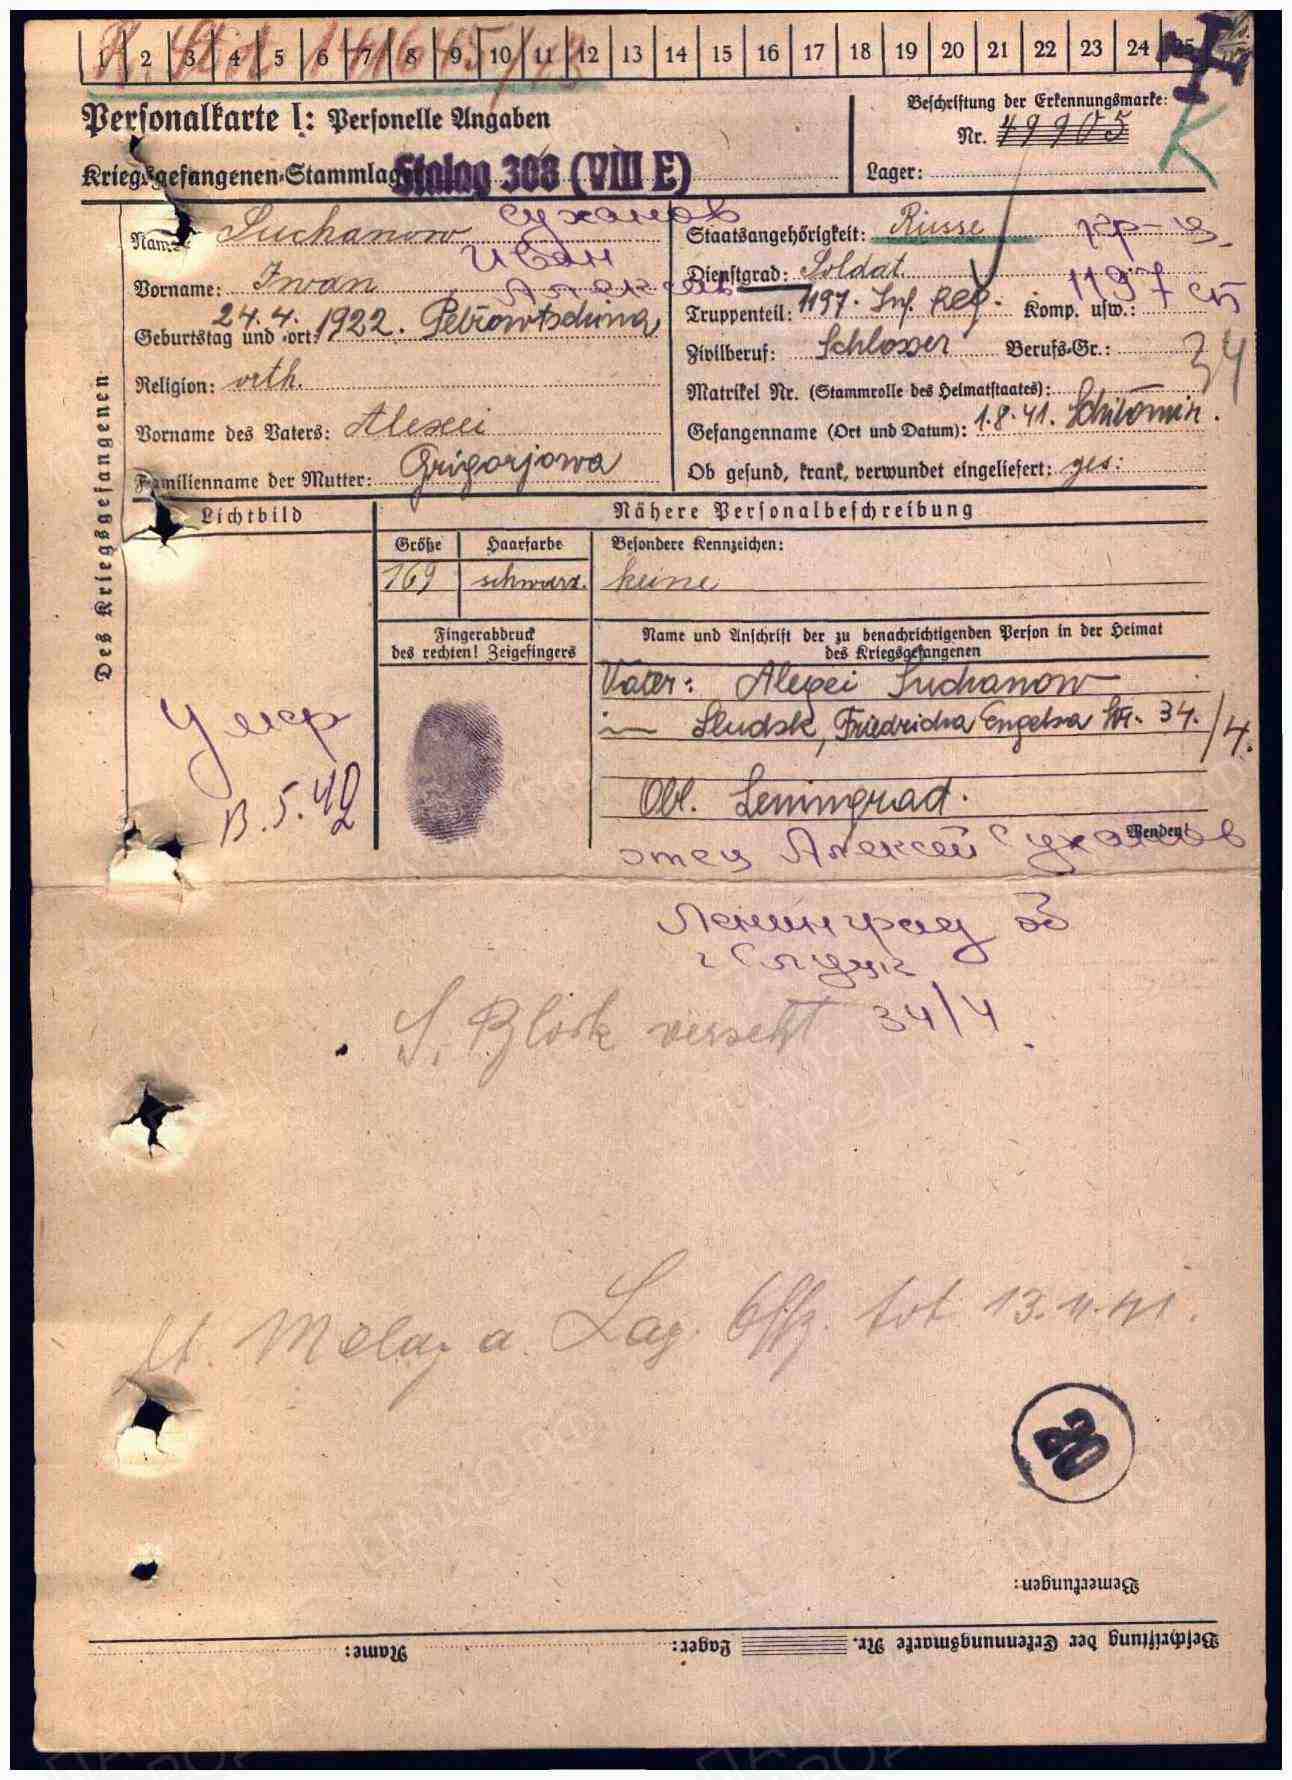 1 2 3 4 5 6 7 8 9 10 11 12 13 14 15 16 17 18 19 20 21 22 23 24 25
Personalkarte I: Personelle Angaben
Beschriftung der Erkennungsmarke:
Nr. 49905
Kriegsgefangenen-Stammlager: Stalag 308 (VIII E)
Lager:
K
Des Kriegsgefangenen
Name: Suchanow Суханов
Vorname: Iwan Иван
Geburtstag und -ort: 24.4.1922. Petrowtschina
Religion: orth.
Vorname des Vaters: Alexei
Familienname der Mutter: Grigorjowa
Staatsangehörigkeit: Russe
Dienstgrad: Soldat
Truppenteil: 1197. Inf. Reg. Komp. usw.: 1197 сп
Zivilberuf: Schlosser Berufs-Gr.: 34
Matrikel Nr. (Stammrolle des Heimatstaates):
Gefangenname (Ort und Datum): 1.8.41. Schitomir.
Ob gesund, krank, verwundet eingeliefert: ges:
Lichtbild
Nähere Personalbeschreibung
Größe Haarfarbe Besondere Kennzeichen:
169 schwarz. keine
Fingerabdruck
des rechten! Zeigefingers
Name und Anschrift der zu benachrichtigenden Person in der Heimat
des Kriegsgefangenen
Vater: Alexei Suchanow
Sludsk, Friedricha Engelsa Str. 34./4.
Obl. Leningrad.
Wenden!
Умер
В.5.42
отец Алексей Суханов
Ленинград об
г Слуцк
34/4
S. Block versetzt
lt. Meldg a. Lag. Offz. tot 13.11.41.
20
Bemerkungen:
Beschriftung der Erkennungsmarke Nr. Lager: Name: